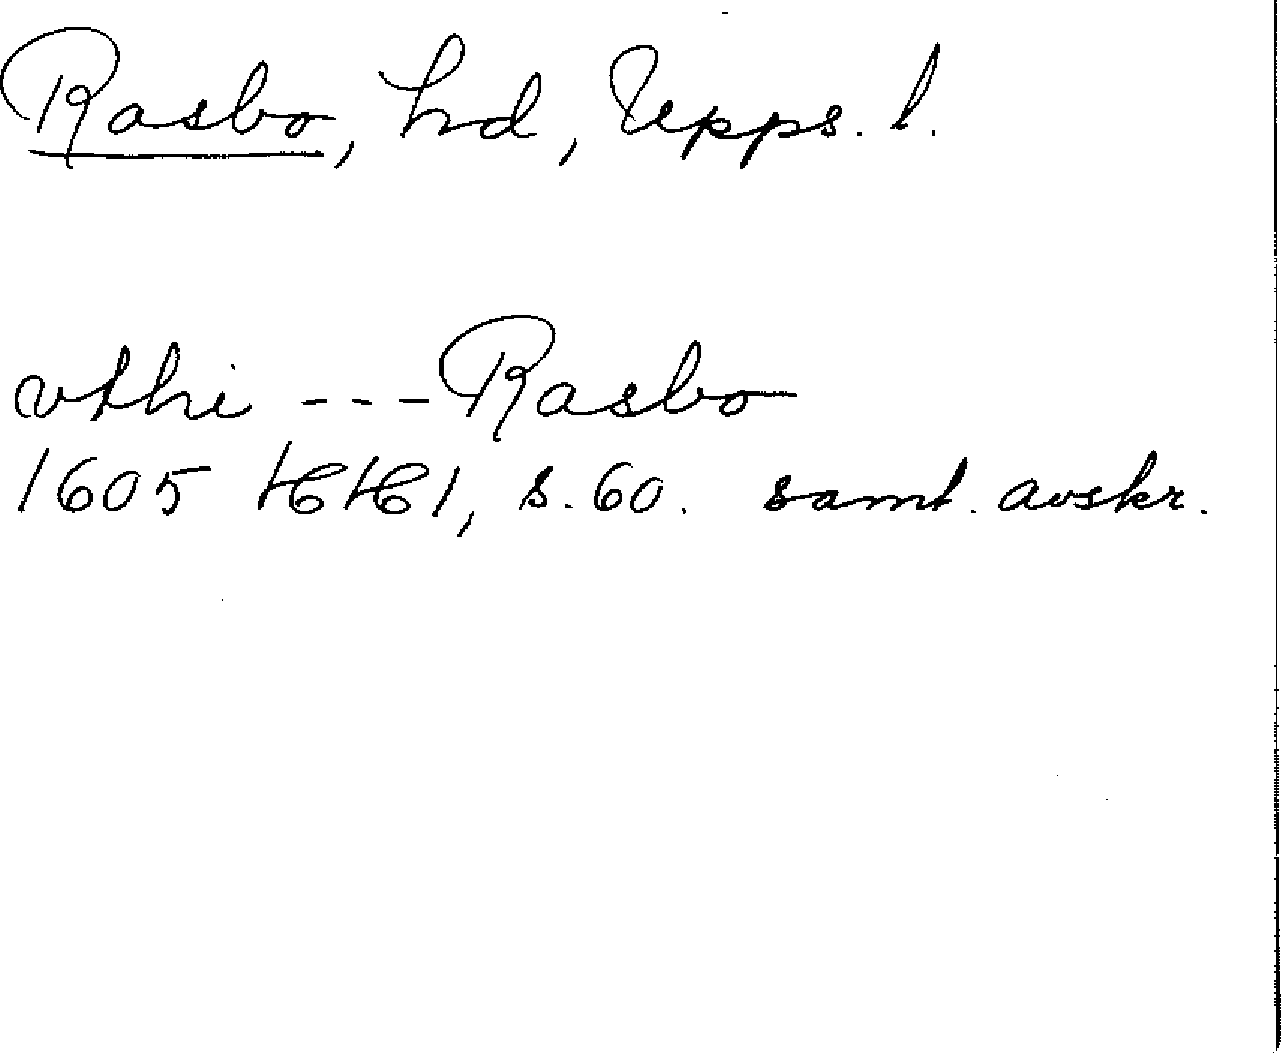 Rasbo, hd, Upps. l.
vthi --- Rasbo
1605 HH1, s. 60. samt. avskr.